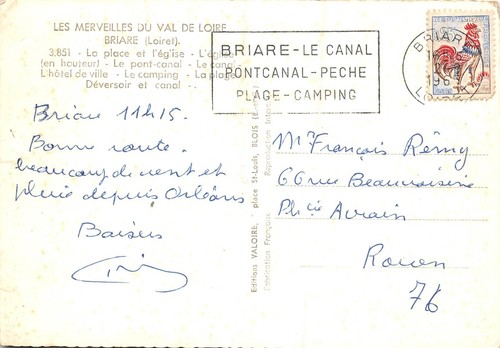 LES MERVEILLES DU VAL DE LOIRE
BRIARE (Loiret).
3.851 - La place et l'église - L'église
(en hauteur) - Le pont-canal - Le canal -
L'hôtel de ville - Le camping - La plage -
Déversoir et canal -.
BRIARE-LE CANAL
PONTCANAL-PECHE
PLAGE-CAMPING
BRIARE
Briare 11h15.
Bonne route.
beaucoup de vent et
pluie depuis Orléans
Baisers
Editions VALOIRE, place St-Louis, BLOIS
Fabrication Française Reproduction
Mr François Rémy
66 rue Beauvoisine
Rouen
76